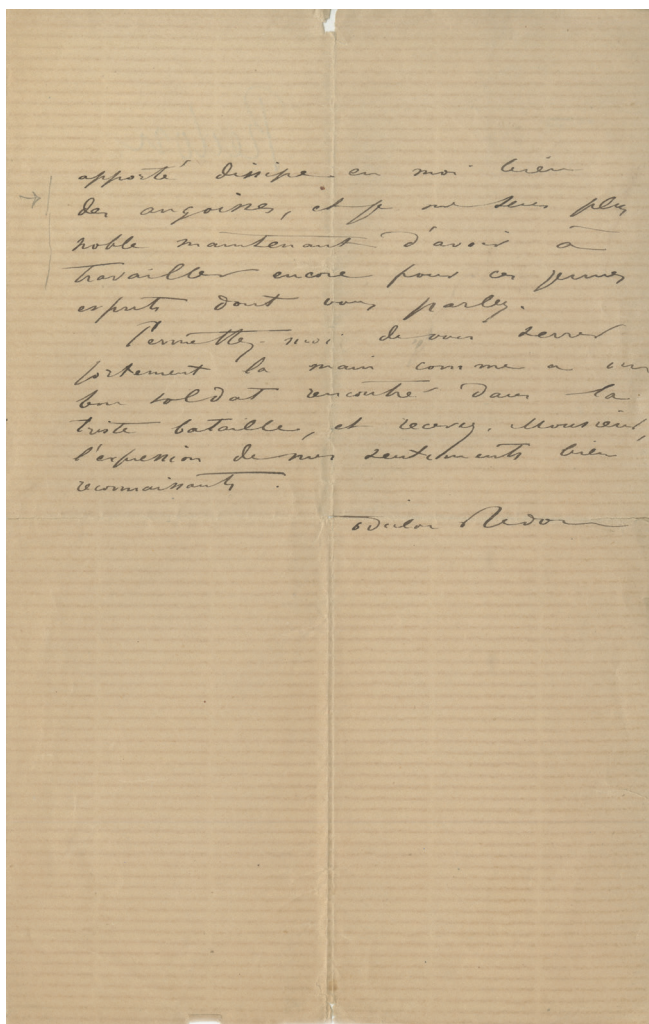 apporté dissipe en moi bien
des angoisses, et je me sens plus
noble maintenant d'avoir à
travailler encore pour ces jeunes
esprits dont vous parlez.
Permettez-moi de vous serrer
fortement la main comme a un
bon soldat rencontré dans la
triste bataille, et recevez, Monsieur,
l'expression de mes sentiments bien
reconnaissants.
Odilon Redon